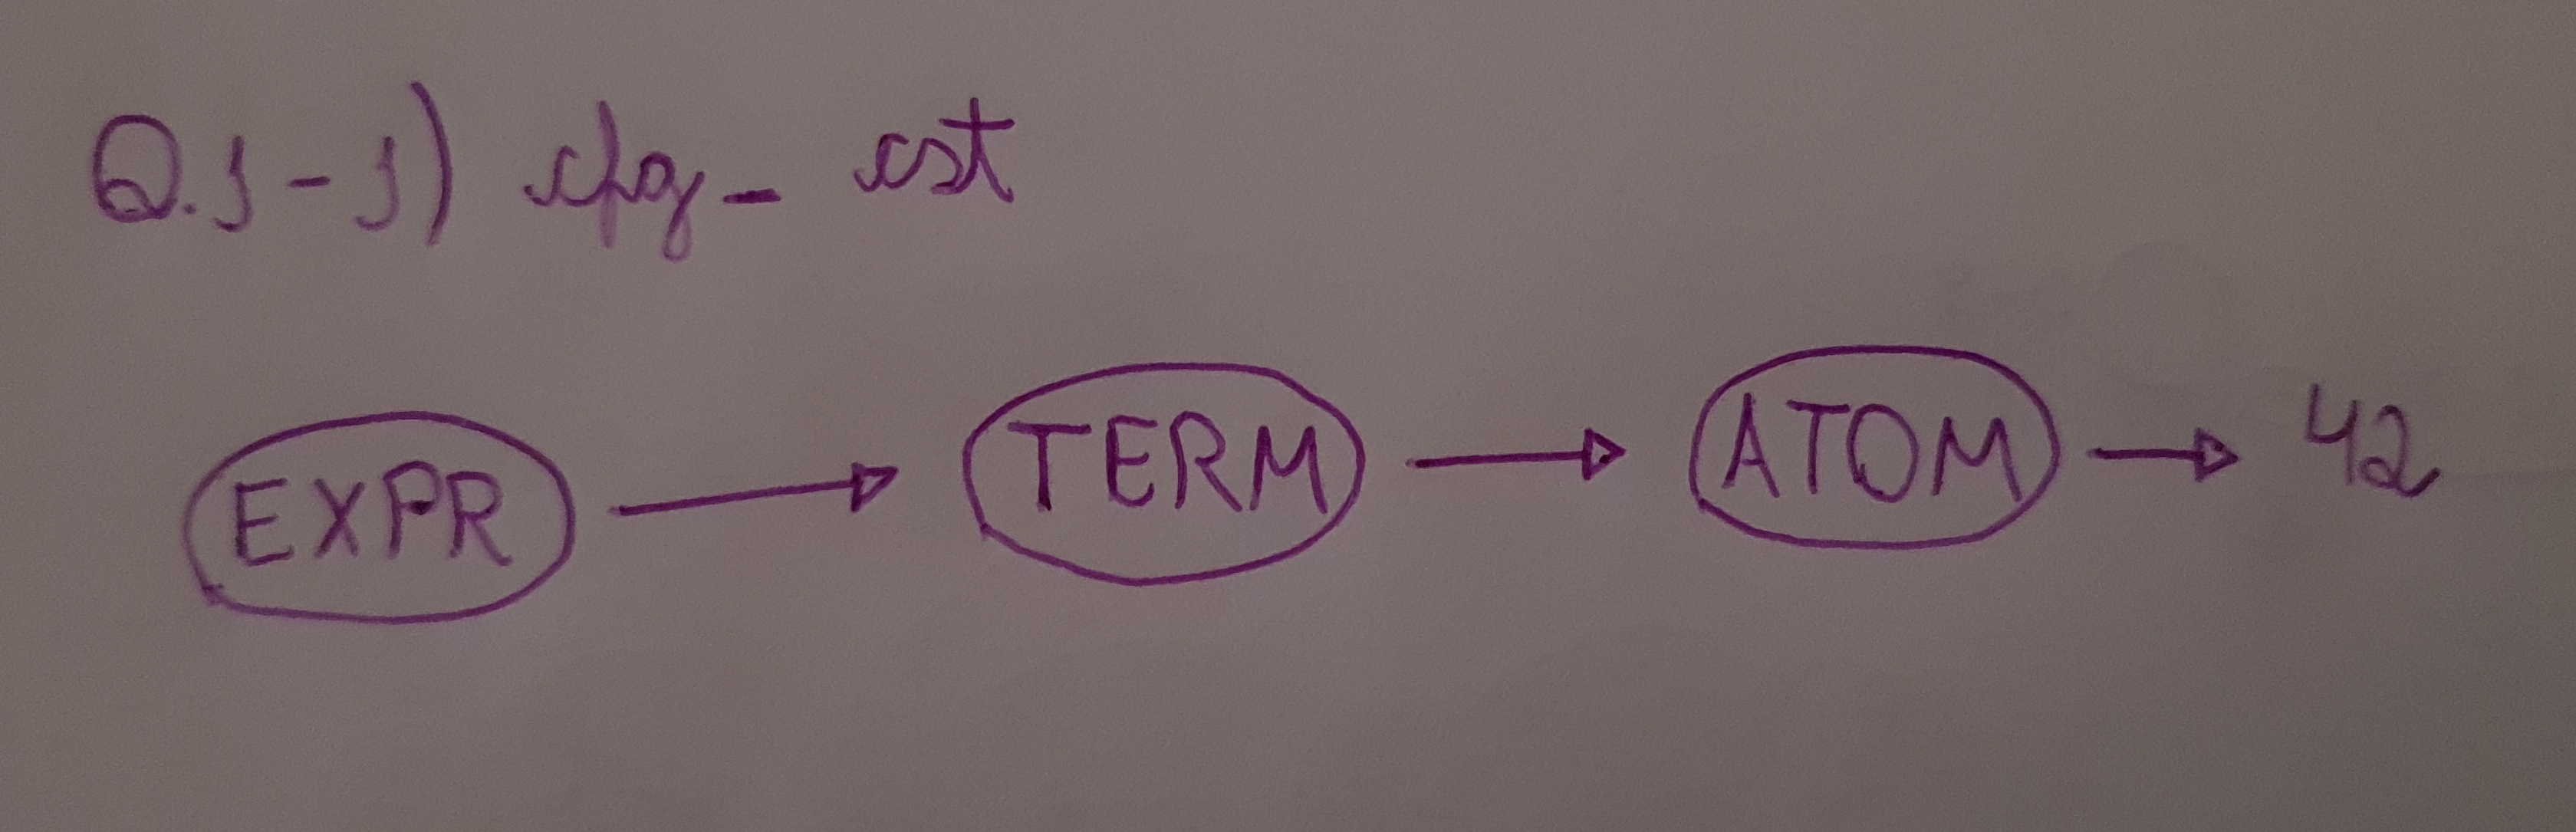 Q.1-1) cfg_cst
EXPR TERM ATOM 42